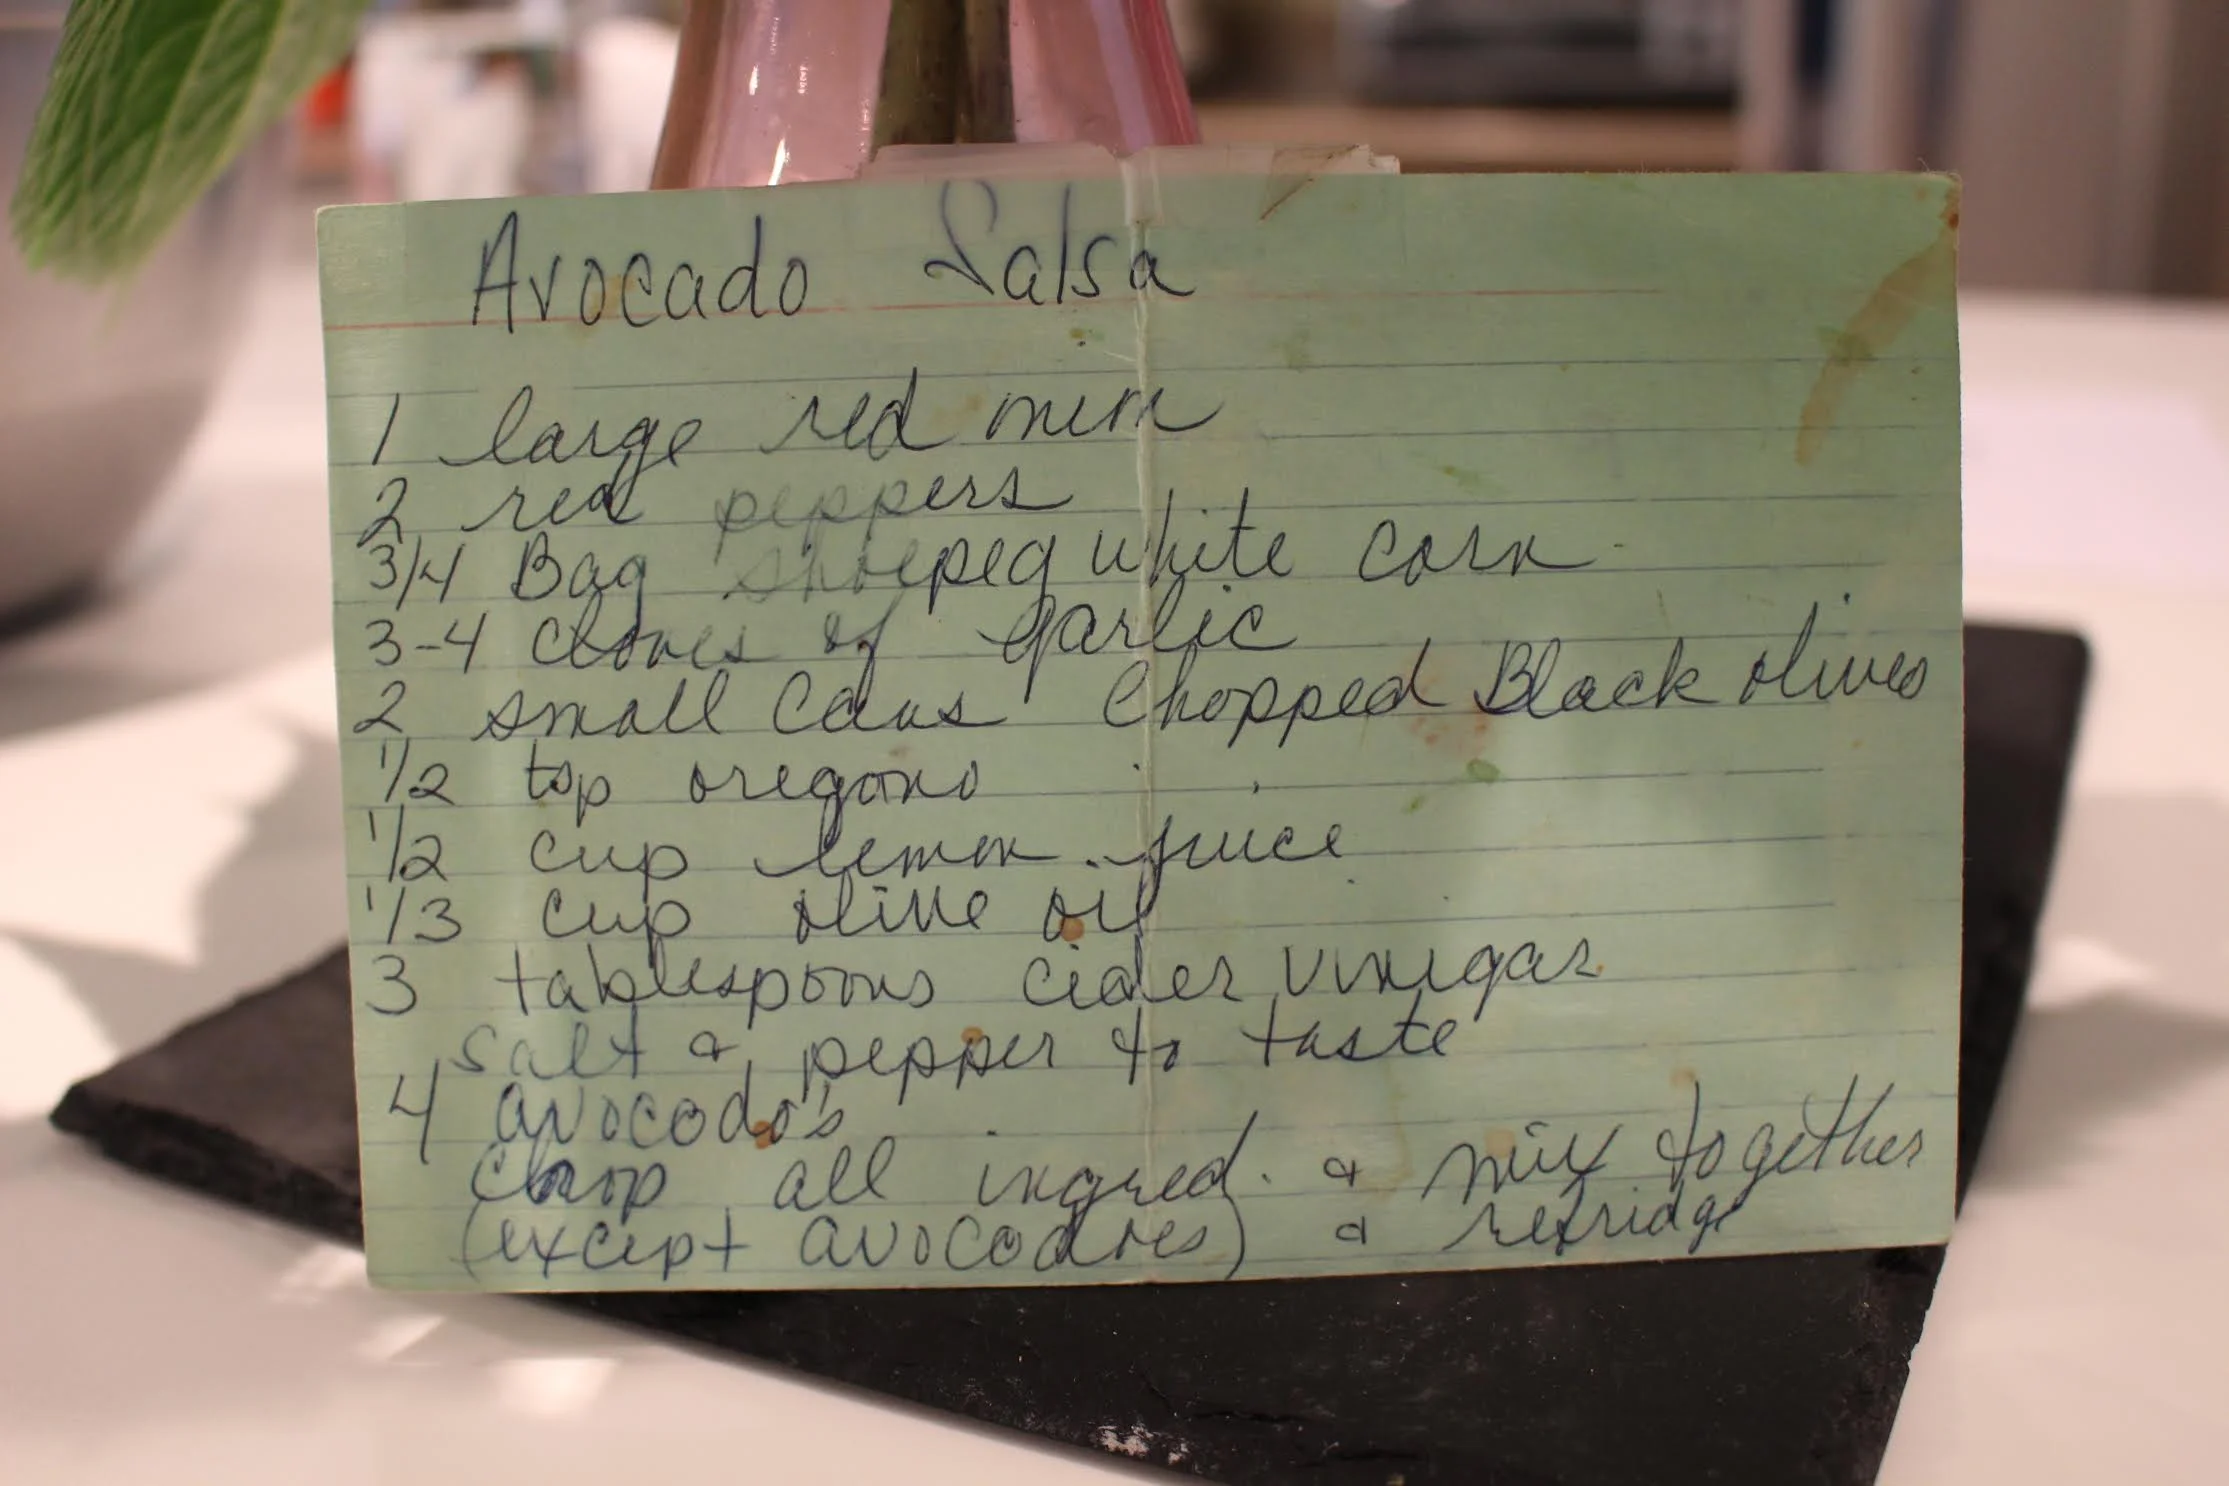 Avocado Salsa
1 large red onion
2 red peppers
3/4 Bag shoepeg white corn
3-4 cloves of garlic
2 small cans Chopped Black olives
1/2 tsp oregano
1/2 cup lemon juice
1/3 cup olive oil
3 tablespoons cider vinegar
salt & pepper to taste
4 avocado's
Chop all ingred. & mix together
(except avocadoes) & refridge